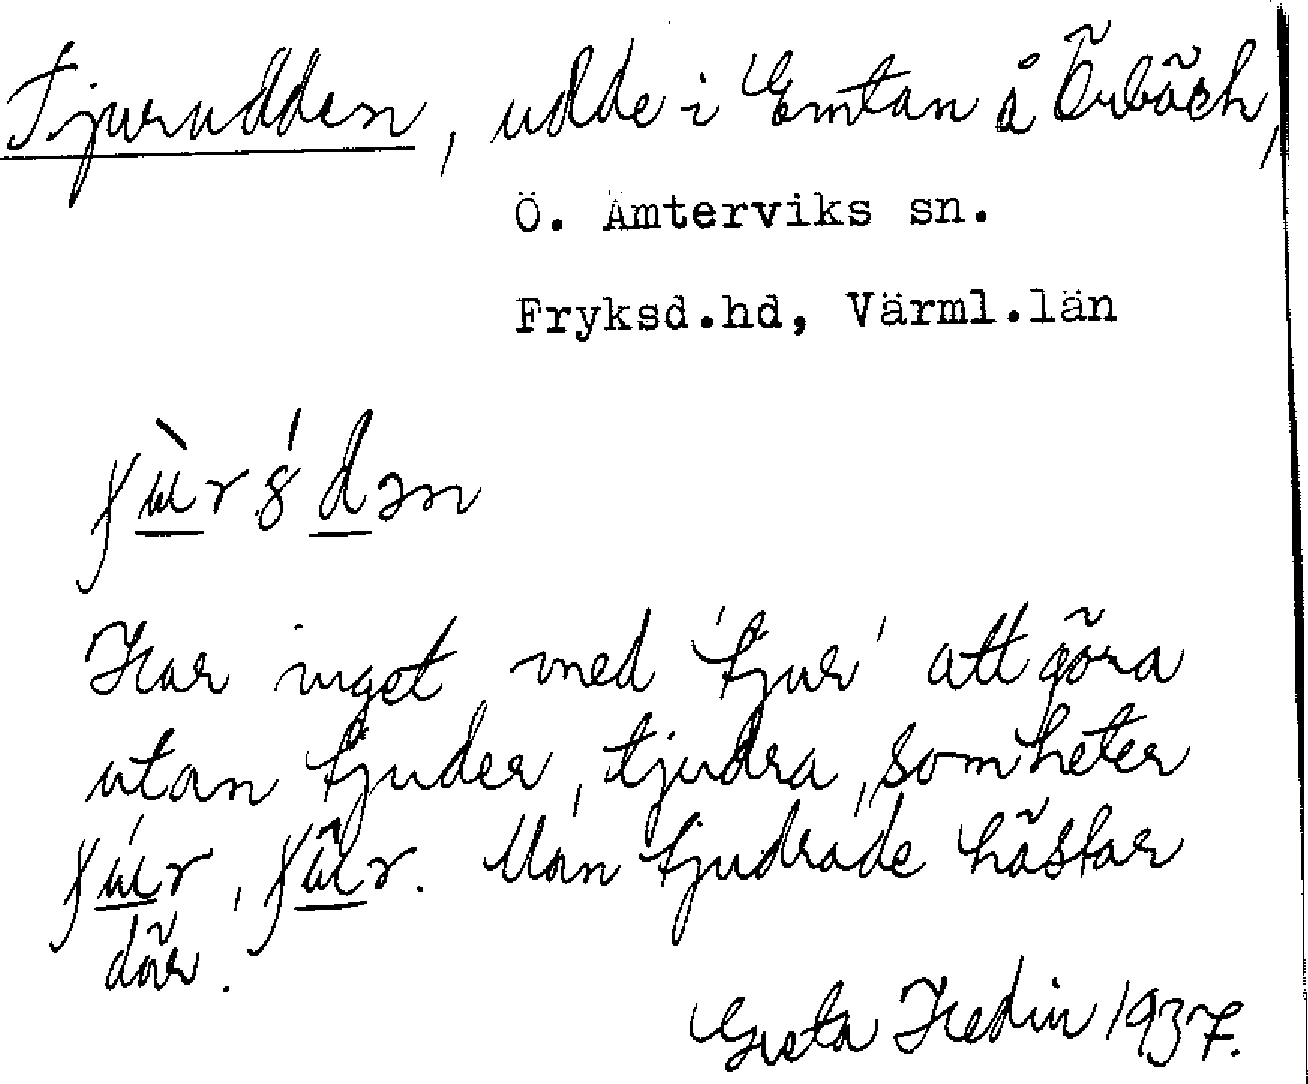 Tjurudden, udde i Emtan å Örbäck,
Ö. Ämterviks sn.
Fryksd.hd, Värml.län
Har inget med 'tjur' att göra
utan tjuder, tjudra, som heter
. Man tjudrade hästar
där.
Greta Hedin 1937.